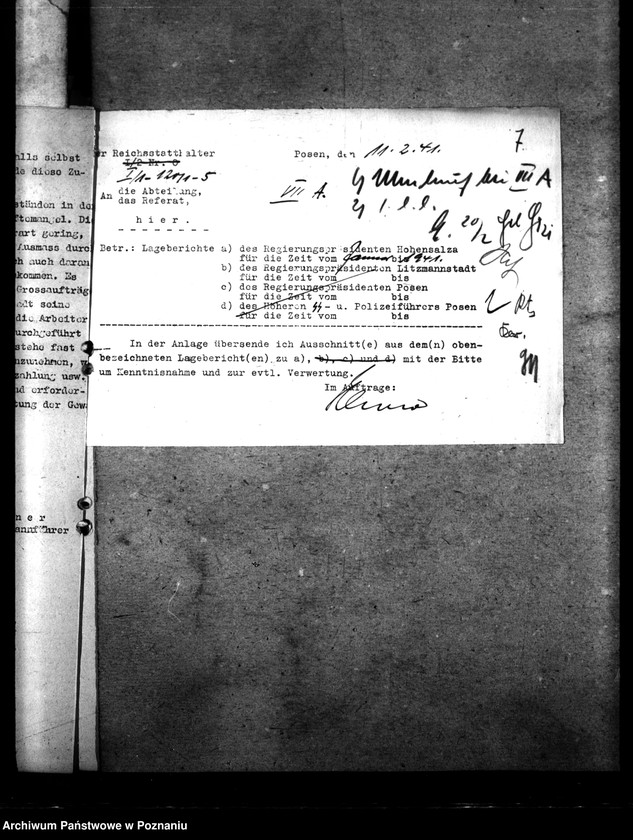 alls selbst
ständen in de
tomangel. Di
art gering,
Ausmass durc
h auch daran
kommen. Es
Grossaufträg
seine
die Arbeiter
urchgeführt
stehe fast
nzunehmen, w
zahlung usw.
nd erforder-
tung der Gew
n e r
annführer
7
r Reichsstatthalter
Posen, den 11.2.41.
I/2 Nr.
I/1-120/1-5
An die Abteilung,
das Referat,
VIII A.
III A
h i e r .
20/2
Betr.: Lageberichte a) des Regierungspräsidenten Hohensalza
für die Zeit vom Januar bis 1941.
b) des Regierungspräsidenten Litzmannstadt
für die Zeit vom bis
c) des Regierungspräsidenten Posen
für die Zeit vom bis
d) des Höheren SS - u. Polizeiführers Posen
für die Zeit vom bis
In der Anlage übersende ich Ausschnitt(e) aus dem(n) oben-
bezeichneten Lagebericht(en) zu a), b), c) und d) mit der Bitte
um Kenntnisnahme und zur evtl. Verwertung.
Im Auftrage:
Archiwum Państwowe w Poznaniu